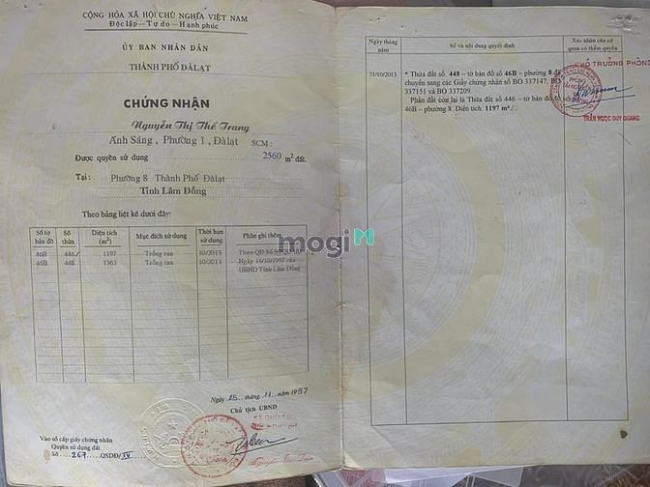 CỘNG HÒA XÃ HỘI CHỦ NGHĨA VIỆT NAM
Độc lập - Tự do - Hạnh phúc
ỦY BAN NHÂN DÂN
THÀNH PHỐ ĐÀLẠT
CHỨNG NHẬN
Nguyễn Thị Thế Trang
Ánh Sáng, Phường 1, Đàlạt SCM:
Được quyền sử dụng 2560 m² đất.
Tại: Phường 8 Thành Phố Đàlạt
Tỉnh Lâm Đồng
Theo bảng liệt kê dưới đây:
Số tờ bản đồ Số thửa Diện tích (m²) Mục đích sử dụng Thời hạn sử dụng Phần ghi thêm
46B 446 1197 Trồng rau 10/2013 Theo QĐ Số
46B 448 1363 Trồng rau 10/2013 Ngày 14/10/1997 của
UBND Tỉnh Lâm Đồng
Ngày 25 tháng 11 năm 1997
Chủ tịch UBND
Vào sổ cấp giấy chứng nhận
Quyền sử dụng đất
Số 267 QSDĐ/IV
Ngày tháng năm Số và nội dung quyết định Xác nhận của cơ quan có thẩm quyền
31/10/2013 * Thửa đất số 448 - tờ bản đồ số 46B - phường 8 đã
chuyển sang các Giấy chứng nhận số BO 337147, BO
337151 và BO 337209.
Phần đất còn lại là Thửa đất số 446 - tờ bản đồ số
46B - phường 8. Diện tích 1197 m²./.
PHÓ TRƯỞNG PHÒNG
TRẦN NGỌC DUY QUANG
mogi